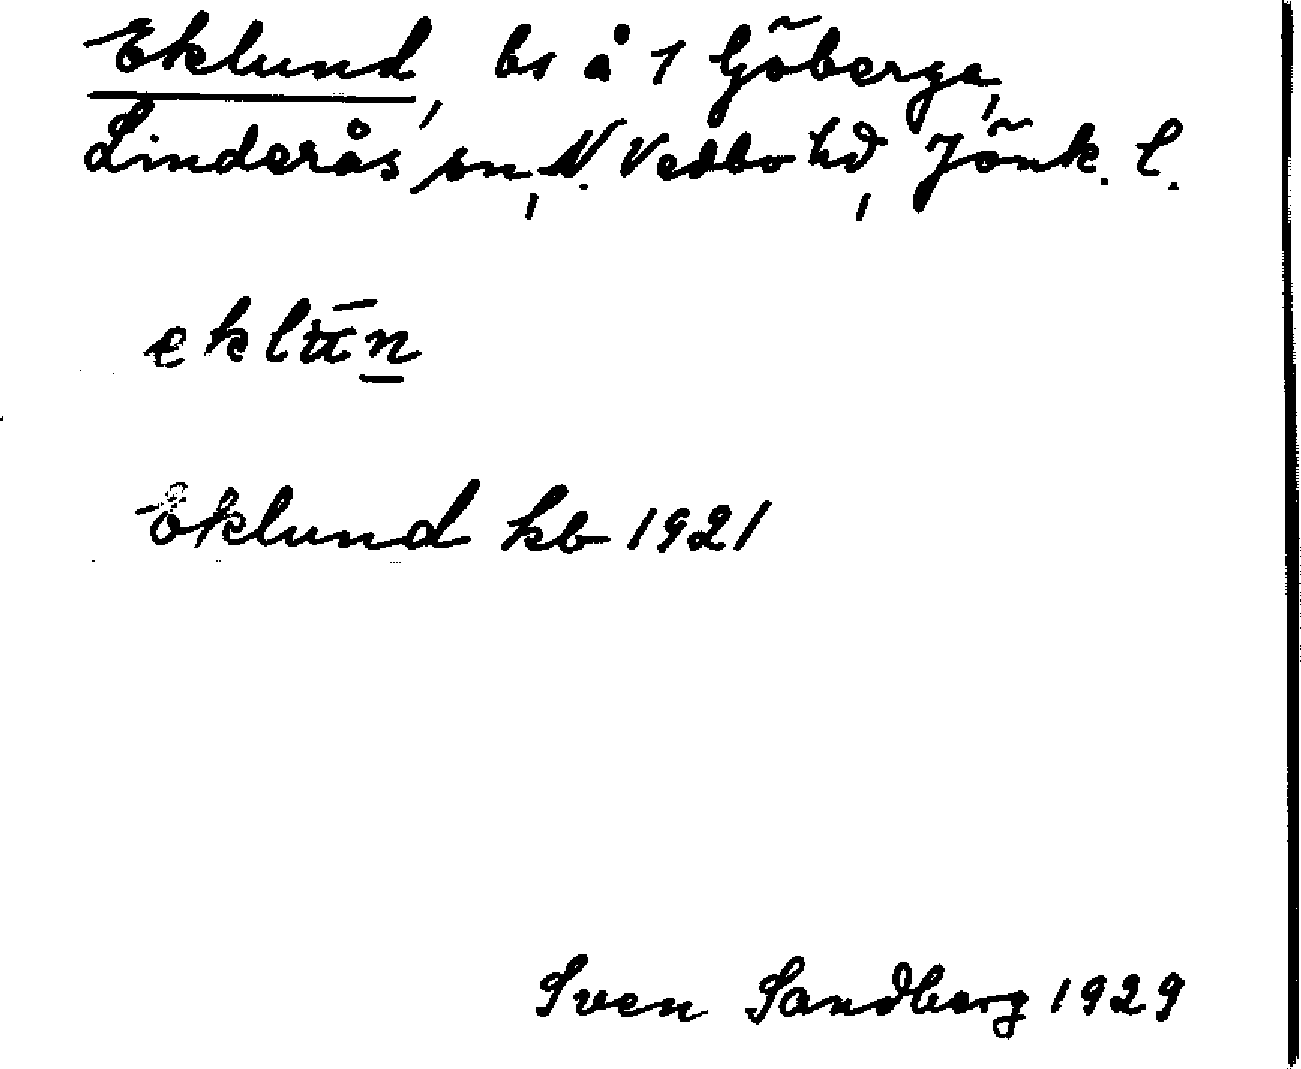 Eklund, bs å 1 Göberga,
Linderås sn, N. Vedbo hd, Jönk. l.
Eklund kb 1921
Sven Sandberg 1929